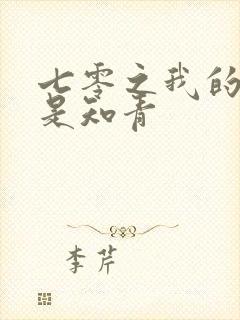 七零之我的
是知青
李芹